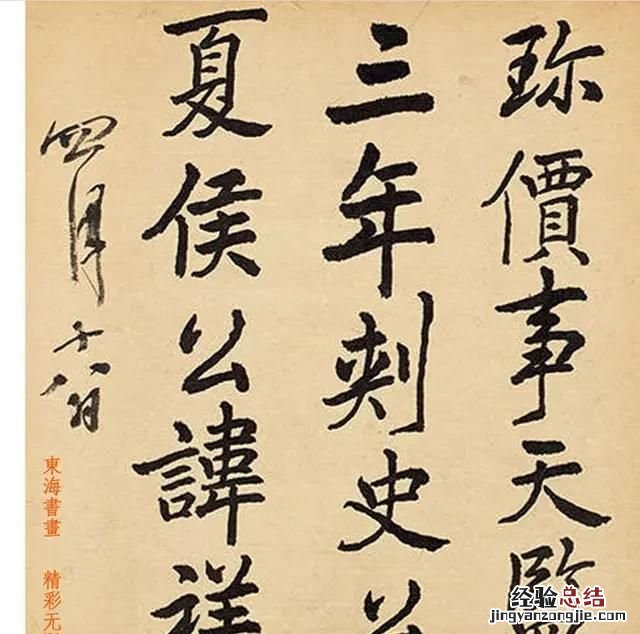 珎價事天
三年刺史
夏侯公諱
四月十八日
東海書畫 精彩无
经验总结
jingyanzongjie.com